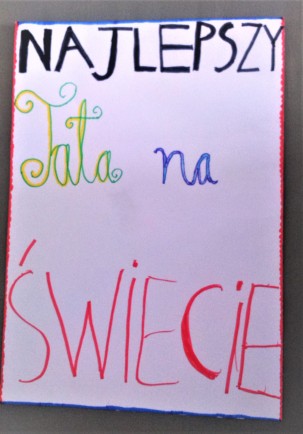 NAJLEPSZY
Tata na
ŚWIECIE